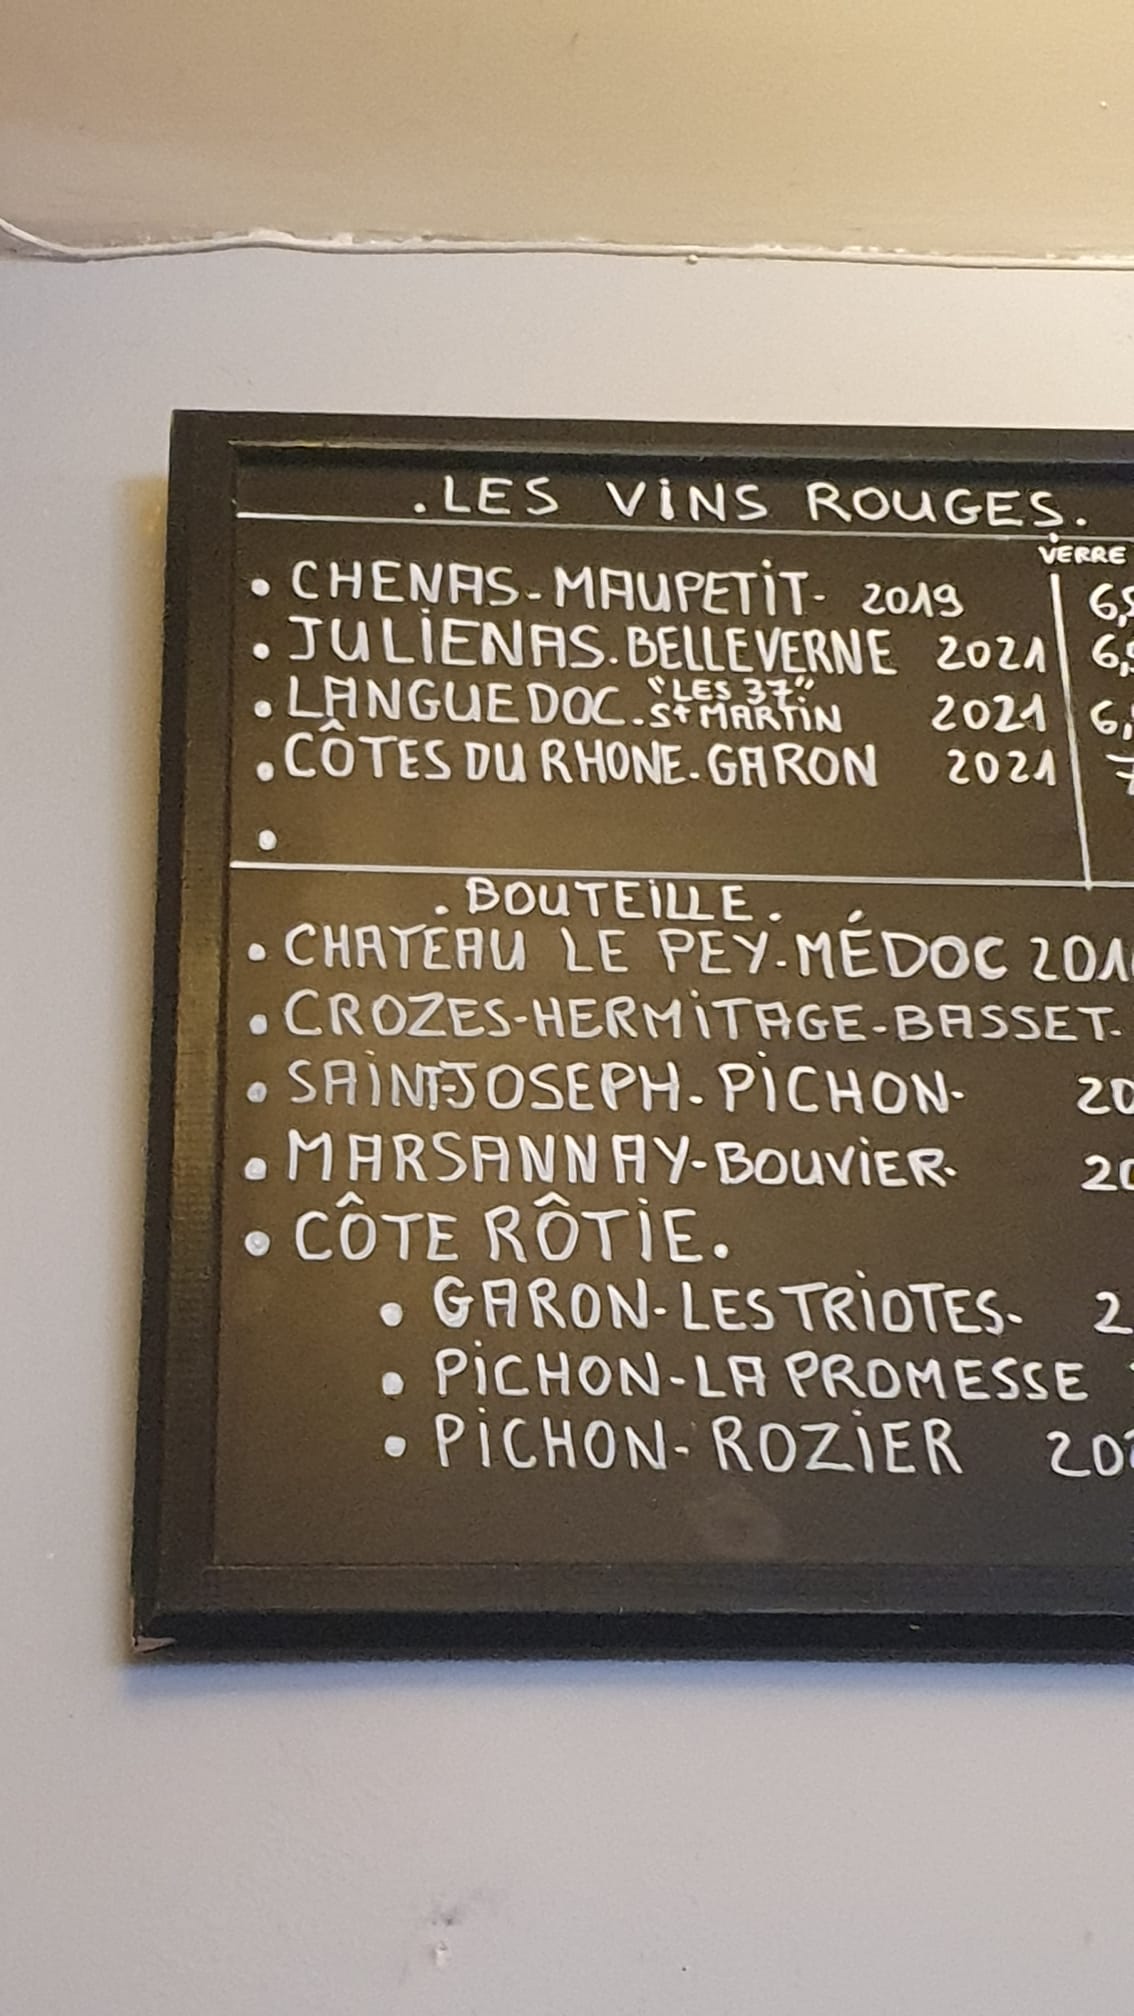 .LES VINS ROUGES.
VERRE
• CHENAS-MAUPETIT- 2019
• JULIENAS. BELLEVERNE 2021
• LANGUEDOC. "LES 37" St MARTIN 2021
• CÔTES DU RHONE. GARON 2021
•
.BOUTEILLE.
• CHATEAU LE PEY-MÉDOC
• CROZES-HERMITAGE-BASSET-
• SAINT-JOSEPH- PICHON-
• MARSANNAY-BOUVIER-
• CÔTE RÔTIE.
• GARON-LES TRIOTES-
• PICHON-LA PROMESSE
• PICHON-ROZIER